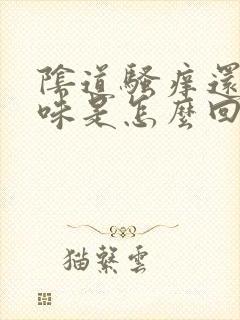 陰道騷癢還
味是怎麼回
猫繫雲